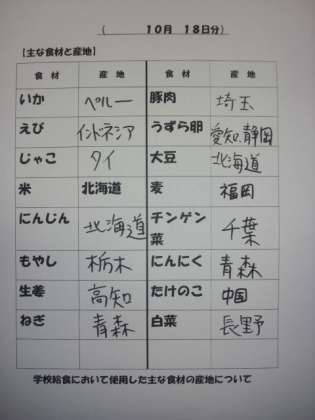 ( 10月 18日分)
【主な食材と産地】
食 材 産 地 食 材 産 地
いか ペルー 豚肉 埼玉
えび インドネシア うずら卵 愛知、静岡
じゃこ タイ 大豆 北海道
米 北海道 麦 福岡
にんじん 北海道 チンゲン菜 千葉
もやし 栃木 にんにく 青森
生姜 高知 たけのこ 中国
ねぎ 青森 白菜 長野
学校給食において使用した主な食材の産地について